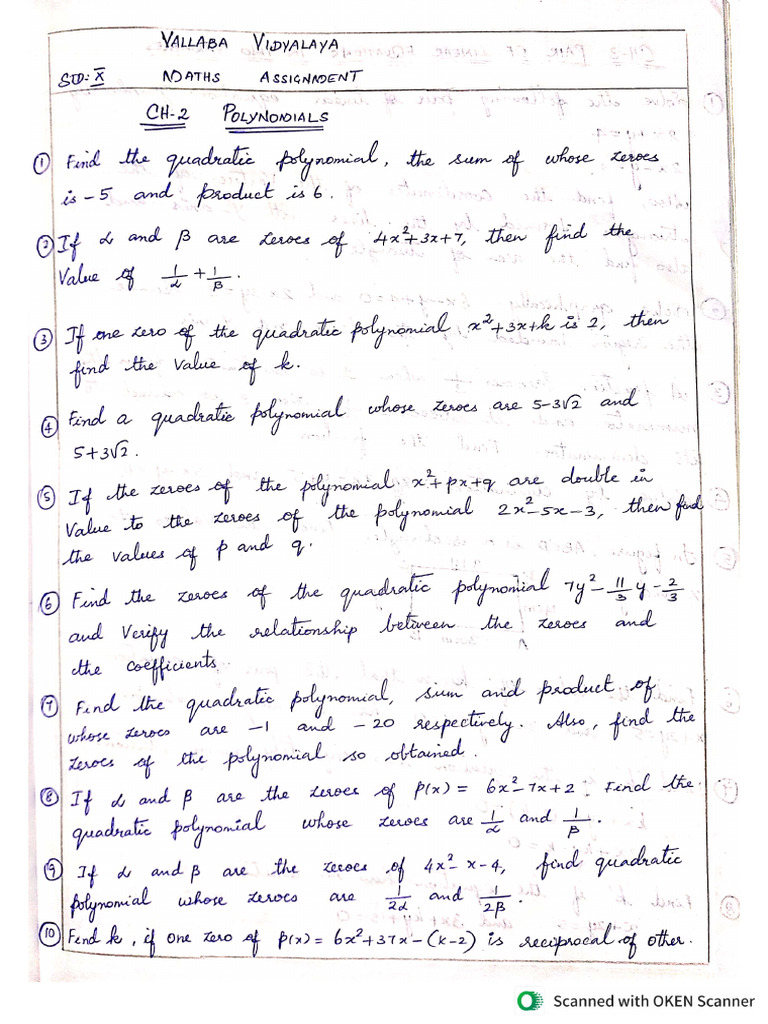 VALLABA VIDYALAYA
STD: X MATHS ASSIGNMENT
CH-2 POLYNOMIALS
① Find the quadratic polynomial, the sum of whose zeroes
is -5 and product is 6.
② If α and β are zeroes of 4x²+3x+7, then find the
Value of 1/α + 1/β.
③ If one zero of the quadratic polynomial x²+3x+k is 2, then
find the value of k.
④ Find a quadratic polynomial whose zeroes are 5-3√2 and
5+3√2.
⑤ If the zeroes of the polynomial x²+px+q are double in
Value to the zeroes of the polynomial 2x²-5x-3, then find
the values of p and q.
⑥ Find the zeroes of the quadratic polynomial 7y² - 11/3 y - 2/3
and Verify the relationship between the zeroes and
the coefficients.
⑦ Find the quadratic polynomial, sum and product of
whose zeroes are -1 and -20 respectively. Also, find the
zeroes of the polynomial so obtained.
⑧ If α and β are the zeroes of P(x) = 6x²-7x+2. Find the
quadratic polynomial whose zeroes are 1/α and 1/β.
⑨ If α and β are the zeroes of 4x²-x-4, find quadratic
polynomial whose zeroes are 1/2α and 1/2β.
⑩ Find k, if one zero of P(x) = 6x²+37x-(k-2) is reciprocal of other.
Scanned with OKEN Scanner